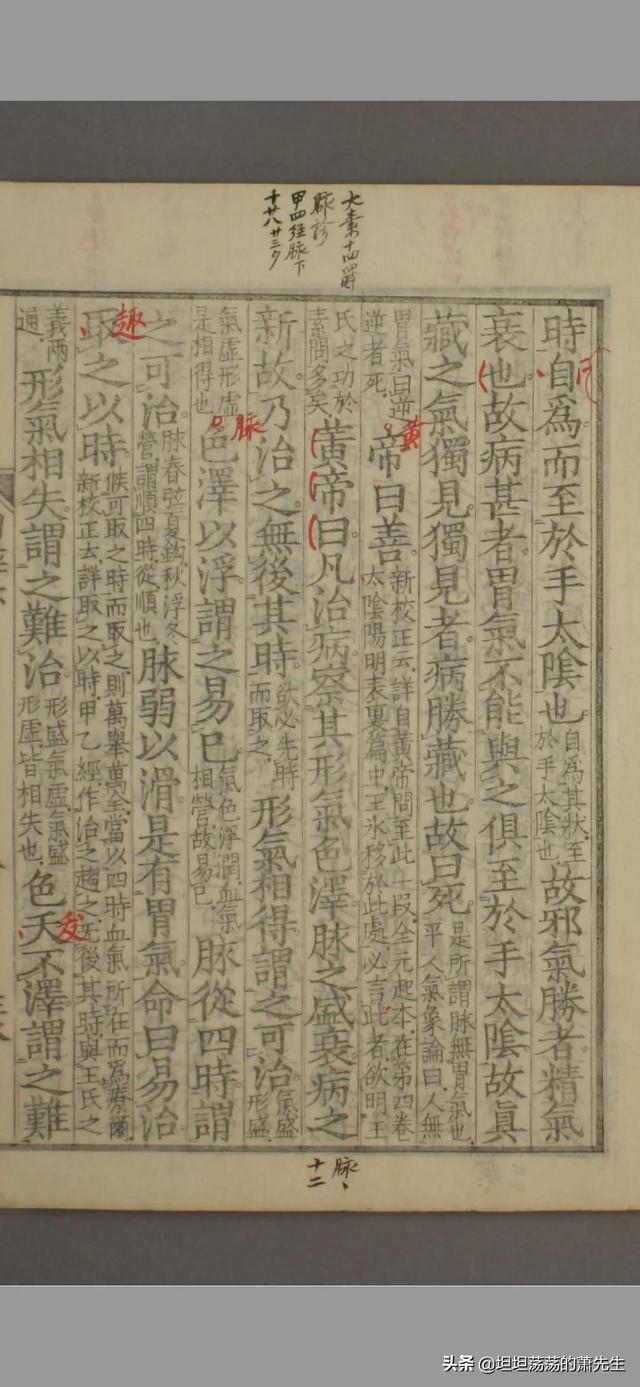 大素十四

脉診
甲四經脉下
十廿八廿三夕
時自爲而至於手太陰也自爲其狀至於手太陰也故邪氣勝者精氣
衰也故病甚者胃氣不能與之俱至於手太陰故眞
藏之氣獨見獨見者病勝藏也故曰死是所謂脉無胃氣也平人氣象論曰人無
胃氣曰逆逆者死
黃
帝曰善新校正云詳自黃帝問至此一段全元起本在第四卷太陰陽明表裏篇中王氷移於此處必言此者欲明王
氏之功於素問多矣黃帝曰凡治病察其形氣色澤脉之盛衰病之
新故乃治之無後其時欲必先時而取之形氣相得謂之可治氣盛形盛
氣虛形虛是相得也
脉
色澤以浮謂之易已氣色浮潤血氣相營故易已脉從四時謂
之可治脉春弦夏鈎秋浮冬營謂順四時從順也脉弱以滑是有胃氣命曰易治
趣
取之以時候可取之時而取之則萬舉萬全當以四時血氣所在而爲療爾新校正云詳取之以時甲乙經作治之趨之无後其時與王氏之
義兩通形氣相失謂之難治形盛氣虛氣盛形虛皆相失也色夭不澤謂之難
脉
十二
头条 @坦坦荡荡的萧先生